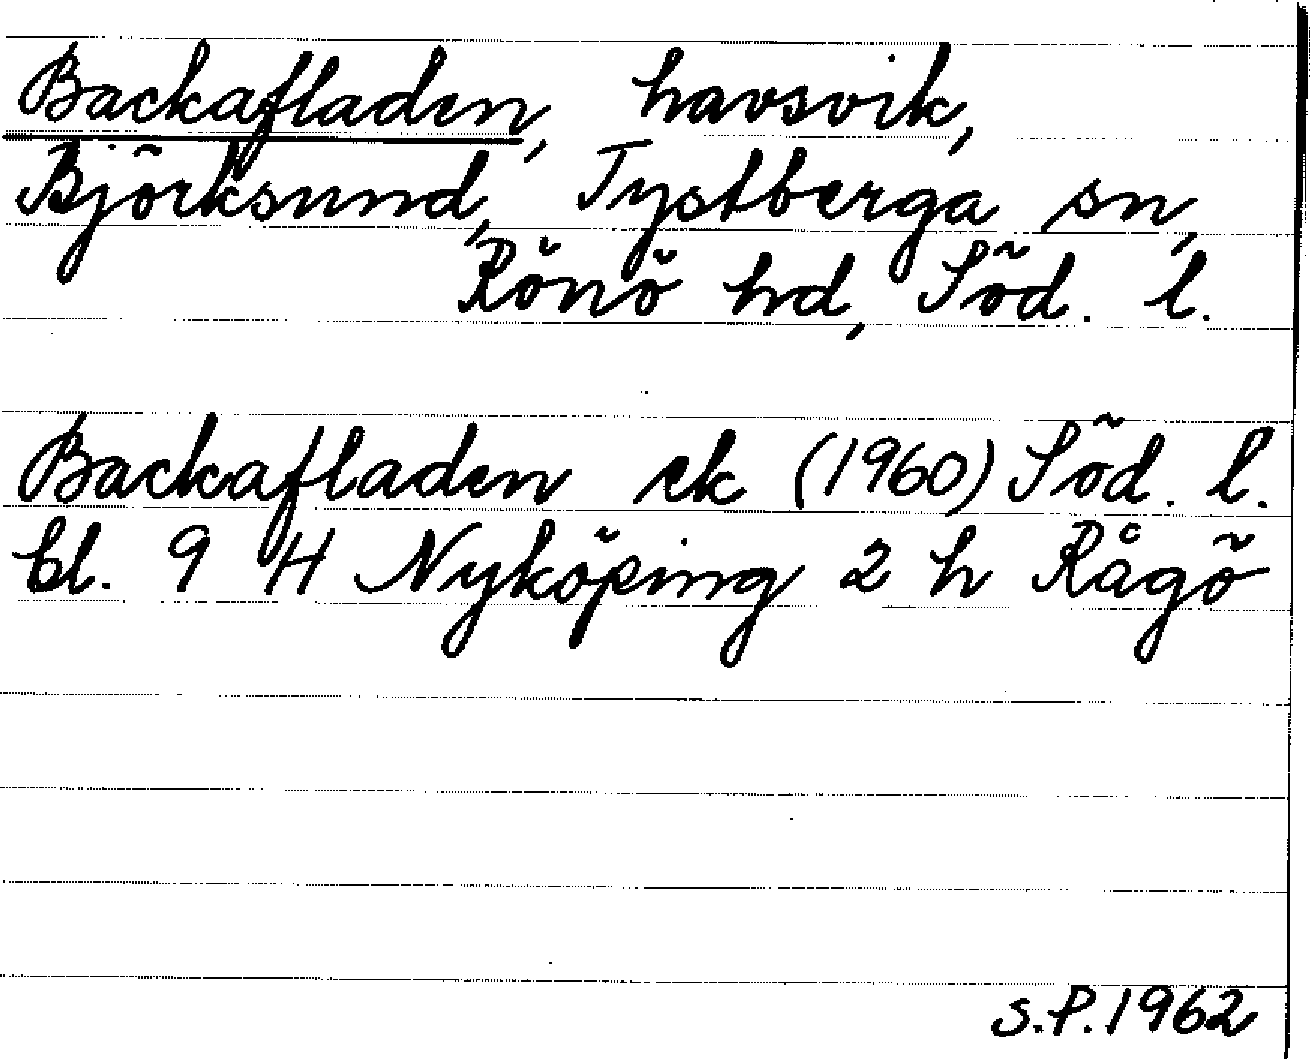 Backafladen, havsvik,
Björksund, Tystberga sn,
Rönö hd, Söd. l.
Backafladen ek (1960) Söd. l.
bl. 9 H Nyköping 2 h Rågö
S.P. 1962